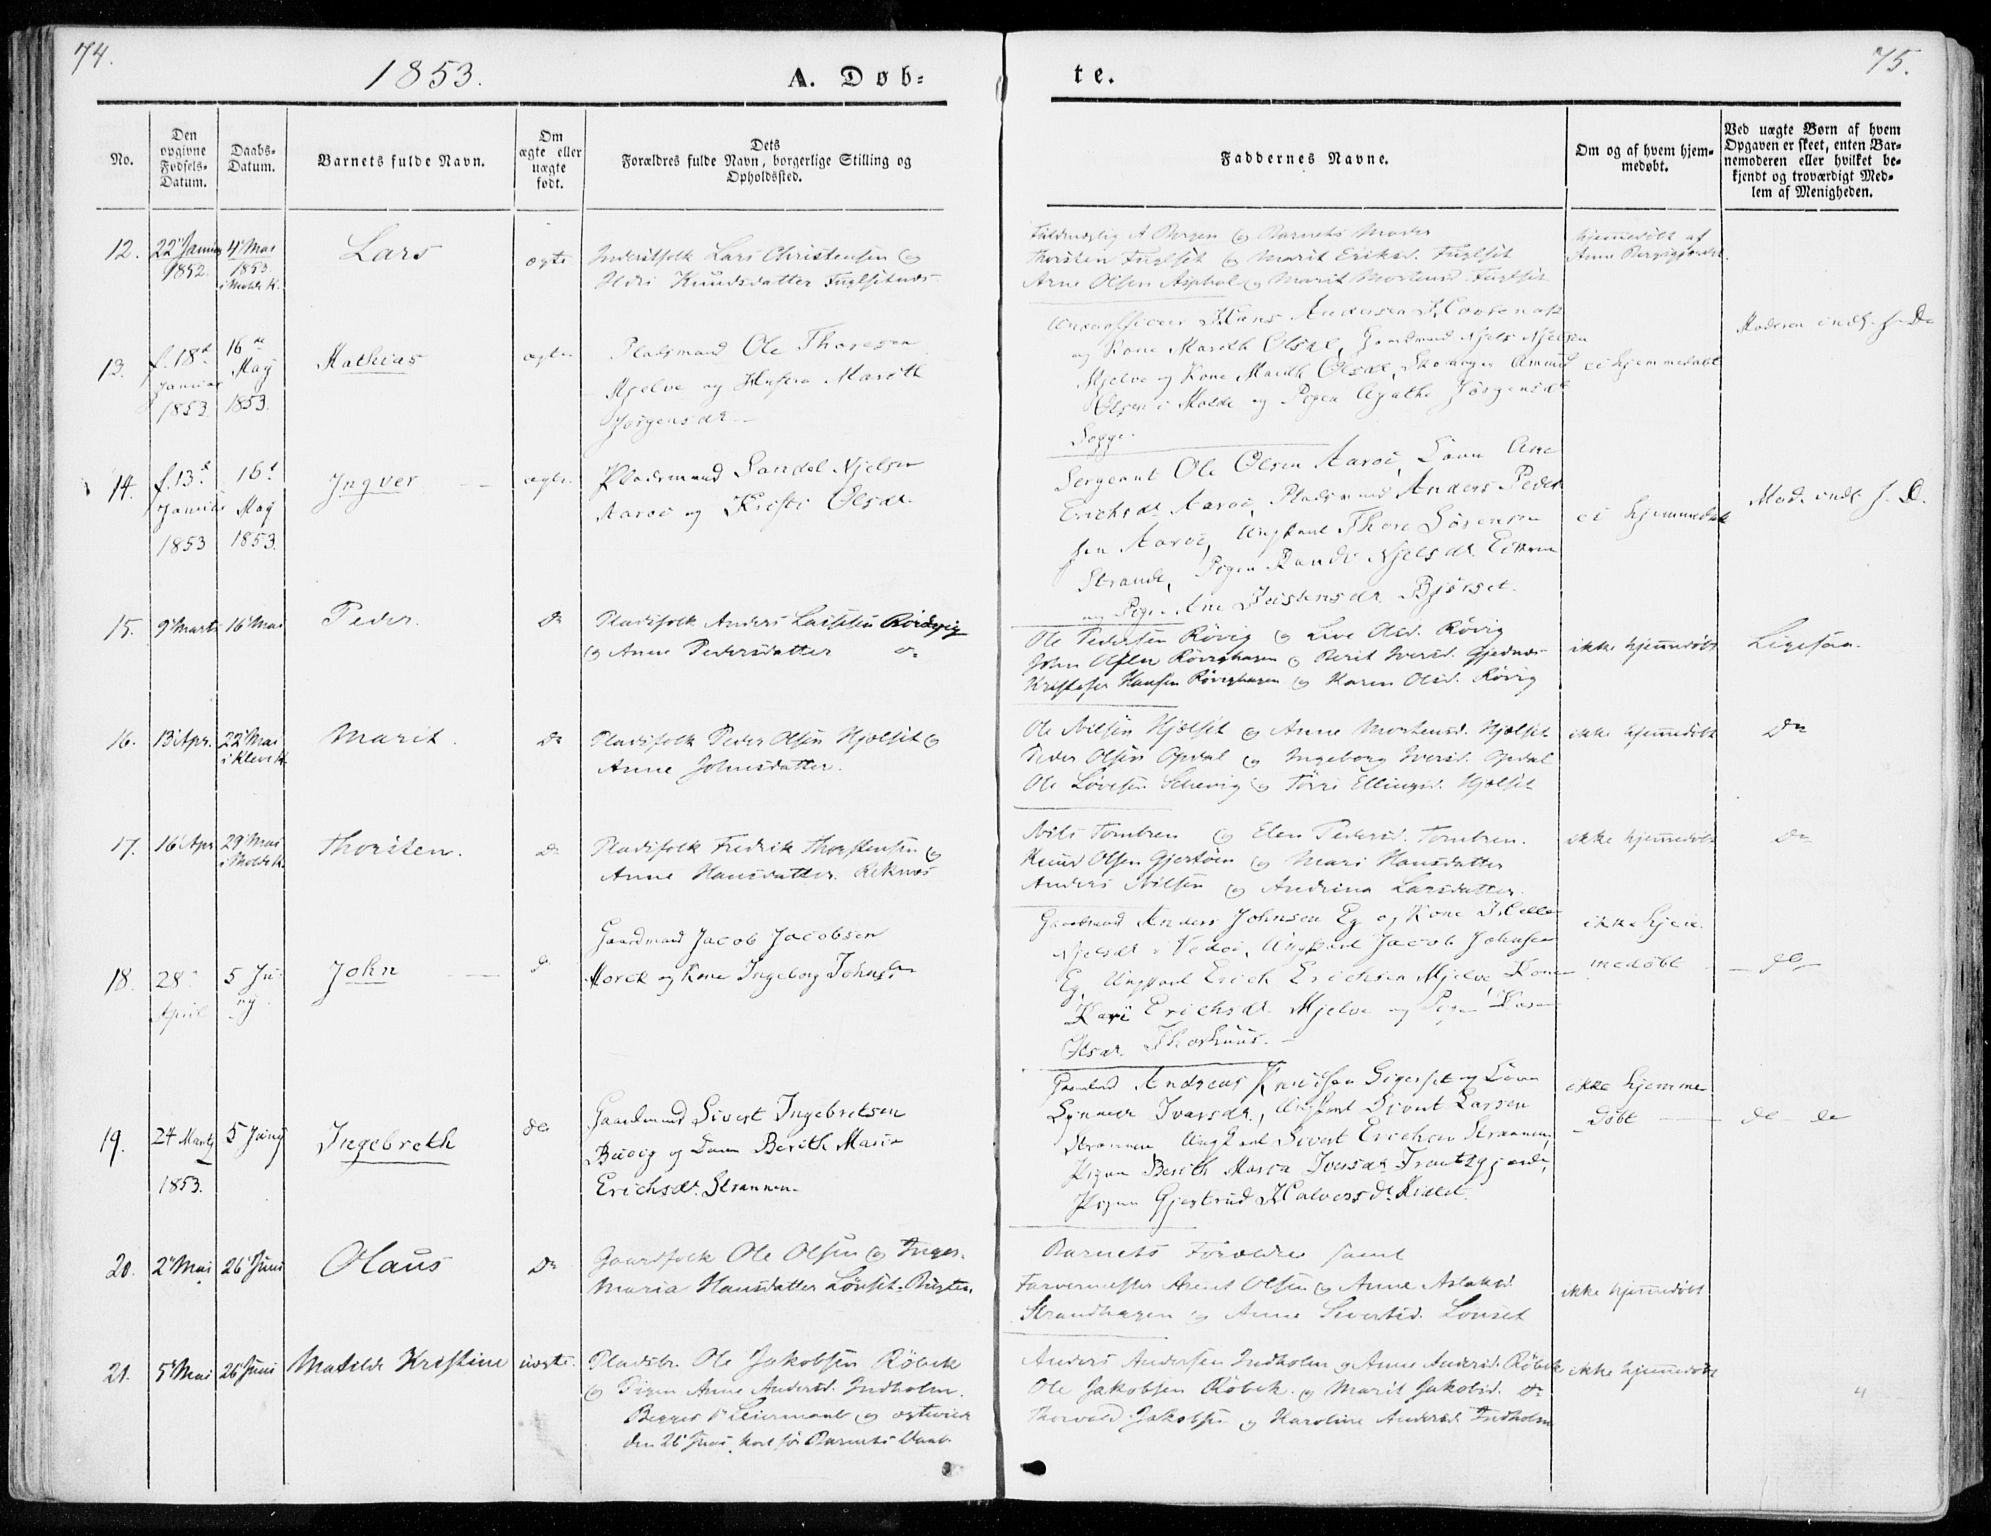 74.
1853.
A. Døb-
te.
75.
No.
Den
opgivne
Fødsels-
Datum.
Daabs-
Datum.
Barnets fulde Navn.
Om
ægte eller
uægte
født.
Dets
Forældres fulde Navn, borgerlige Stilling og
Opholdssted.
Faddernes Navne.
Om og af hvem hjem-
medøbt.
Ved uægte Børn af hvem
Opgaven er skeet, enten Bar-
nemoderen eller hvilket be-
kjendt og troværdigt Med-
lem af Menigheden.
12.
22 Januar
1852.
4 Mai
1853
i Molde K.
Lars
ægte
Inderstfolk Lars Christensen og
Knudsdatter Fuglsetnæs
A Bergen og Barnets Moder
Thorsten Fuglset og Marit Eriksd. Fuglset
Arne Olsen Asphol og Marit Mortensd. Fuglset
hjemmedøbt af
Anne
13.
f. 18d
Januar
1853
16de
May
1853.
Mathias
ægte
Pladsmand Ole Thoresen
Mjelve og Hustru Marith
Jørgensdr.
Underofficeer Hans Andersen
og Kone Marith Olsdr, Gaardmand Njels Njelsen
Mjelve og Kone Marith Olsdr, Skomager Amund
Olsen i Molde og Pigen Agathe Jørgensdr
Sogge.
ei hjemmedøbt
Moderen indl. f. D.
14.
f. 13d
Januar
1853
16d
May
1853.
Ingver
ægte
Pladsmand Sandel Njelsen
Aarøe og Kristi Olsdr.
Sergeant Ole Olsen Aarøe, Kone Ane
Erichsdr Aarøe, Pladsmand Anders Peder-
sen Aarøe, Ungkarl Thore Sørensen
Strande, Pigen Randi Njelsdr.
og Pigen Ane Jostensdr. Bjørset.
ei hjemmedøbt
Mod. indl. f. D.
15.
9 Marts
16 Mai
Peder.
Do
Pladsfolk Anders Larssen Rørvig
og Anne Pedersdatter do
Ole Pedersen Røvig og Live Olsd. Røvig
John Olsen Røvighagen og Berit Iversd. Gjednæs
Kristofer Hansen Røvighagen og Karen Olsd. Røvig
ikke hjemmedøbt
Ligesaa.
16.
13 Apr.
22 Mai
i Kleve K.
Marit.
Do
Pladsfolk Peder Olsen Hjelset og
Anne Johnsdatter.
Ole Nilsen Hjelset og Anne Mortensd. Hjelset
Peder Olsen Opdal og Ingeborg Iversd. Opdal
Ole og Ellingsd. Hjelset
ikke hjemmedøbt
Do
17.
16 Apr
29 Mai
i Molde K.
Thorsten.
Do
Pladsfolk Fredrik Thorstensen og
Anne Hansdatter. Reknæs
Nils Tornbren og Elen Pedersd. Tornbren.
Knud Olsen Gjertøen og Mari Hansdatter
Anders Nilsen og Andrina Larsdatter.
ikke hjemmedøbt
Do
18.
28
April
5 Ju-
ny
John
d
Gaardmand Jacob Jacobsen
Morck og Kone Ingeborg Johnsdr
Gaardmand Anders Johnsen Eg og Kone
Njelsdr i Vedøe, Ungkarl Jacob Johnsen
Eg, Ungkarl Erich Erichsen Mjelve, Kone
Kari Erichsdr. Mjelve og Pigen
Olsdr. Thorhuus.
ikke hjem-
medøbt
do
19.
27 Marts
1853.
5 Juny
Ingebreth
do
Gaardmand Sivert Ingebretsen
og Kone Berith Maria
Erichsdr. Strannen
Gaardmand Andreas Knudsen og Kone
Synneve Ivarsdr., Ungkarl Sivert Larssen
Strannen, Ungkarl Sivert Erichsen Strannen,
Pigen Berith Maria Iversdr
Pigen Gjertrud Halvorsdr.
ikke hjemme
døbt
do do
20.
2 Mai
26 Juni
Olaus
Do
Gaardfolk Ole Olsen og Inger
Maria Hansdatter Lønset-Bugten.
Barnets Forældre samt
Farvermester Arent Olsen og Anne Aslaksd.
Strandhagen og Anne Sivertsd. Lønset
ikke hjemmedøbt
21.
5 Mai
26 Juni
Matilde Kristine
uægte.
Pladsbr. Ole Jakobsen Røbek
og Pigen Anne Andersd. Indholm.
Begges 1ste Leiermaal og ægteviede
den 26 Juni, kort før Barnets Daab
Anders Andersen Indholm og Anne Andersd. Røbek
Ole Jakobsen Røbek og Marit Jakobsd. do
Thorvald Jakobsen og Karoline Andersd. Indholm
ikke hjemmedøbt
"